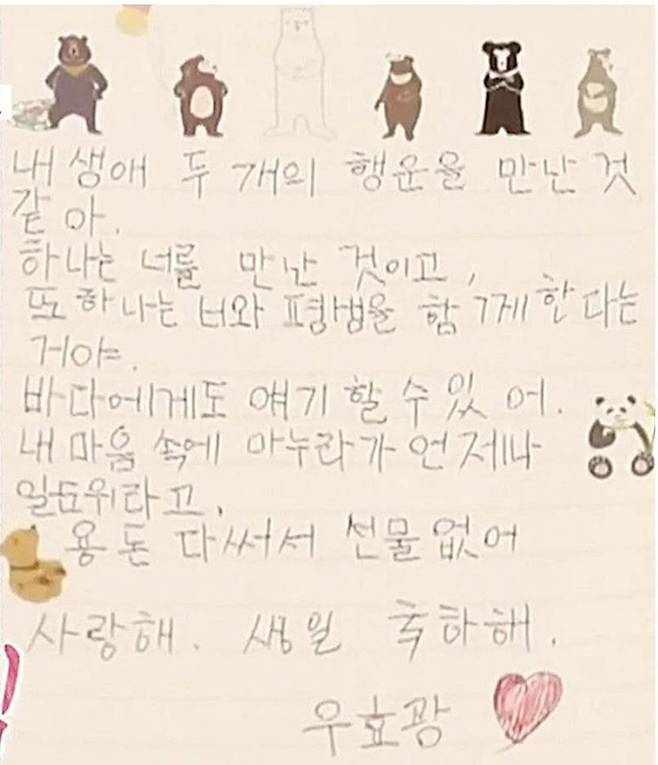 내 생애 두 개의 행운을 만난 것
같아.
하나는 너를 만난 것이고,
또 하나는 너와 평생을 함께 한다는
거야.
바다에게도 얘기 할 수 있어.
내 마음 속에 마누라가 언제나
일등위라고.
용돈 다써서 선물없어
사랑해. 생일 축하해.
우효광